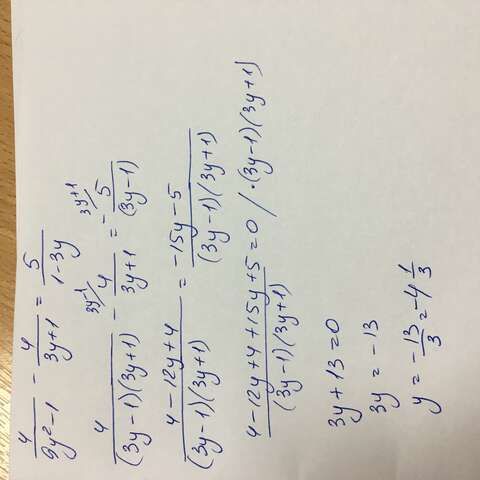 4/(9y²-1) - 4/(3y+1) = 5/(1-3y)
4/((3y-1)(3y+1)) - 4/(3y+1) ^(3y-1) = -5/(3y-1) ^(3y+1)
(4-12y+4)/((3y-1)(3y+1)) = (-15y-5)/((3y-1)(3y+1))
(4-12y+4+15y+5)/((3y-1)(3y+1)) = 0 / ·(3y-1)(3y+1)
3y+13=0
3y=-13
y=-13/3=-4 1/3